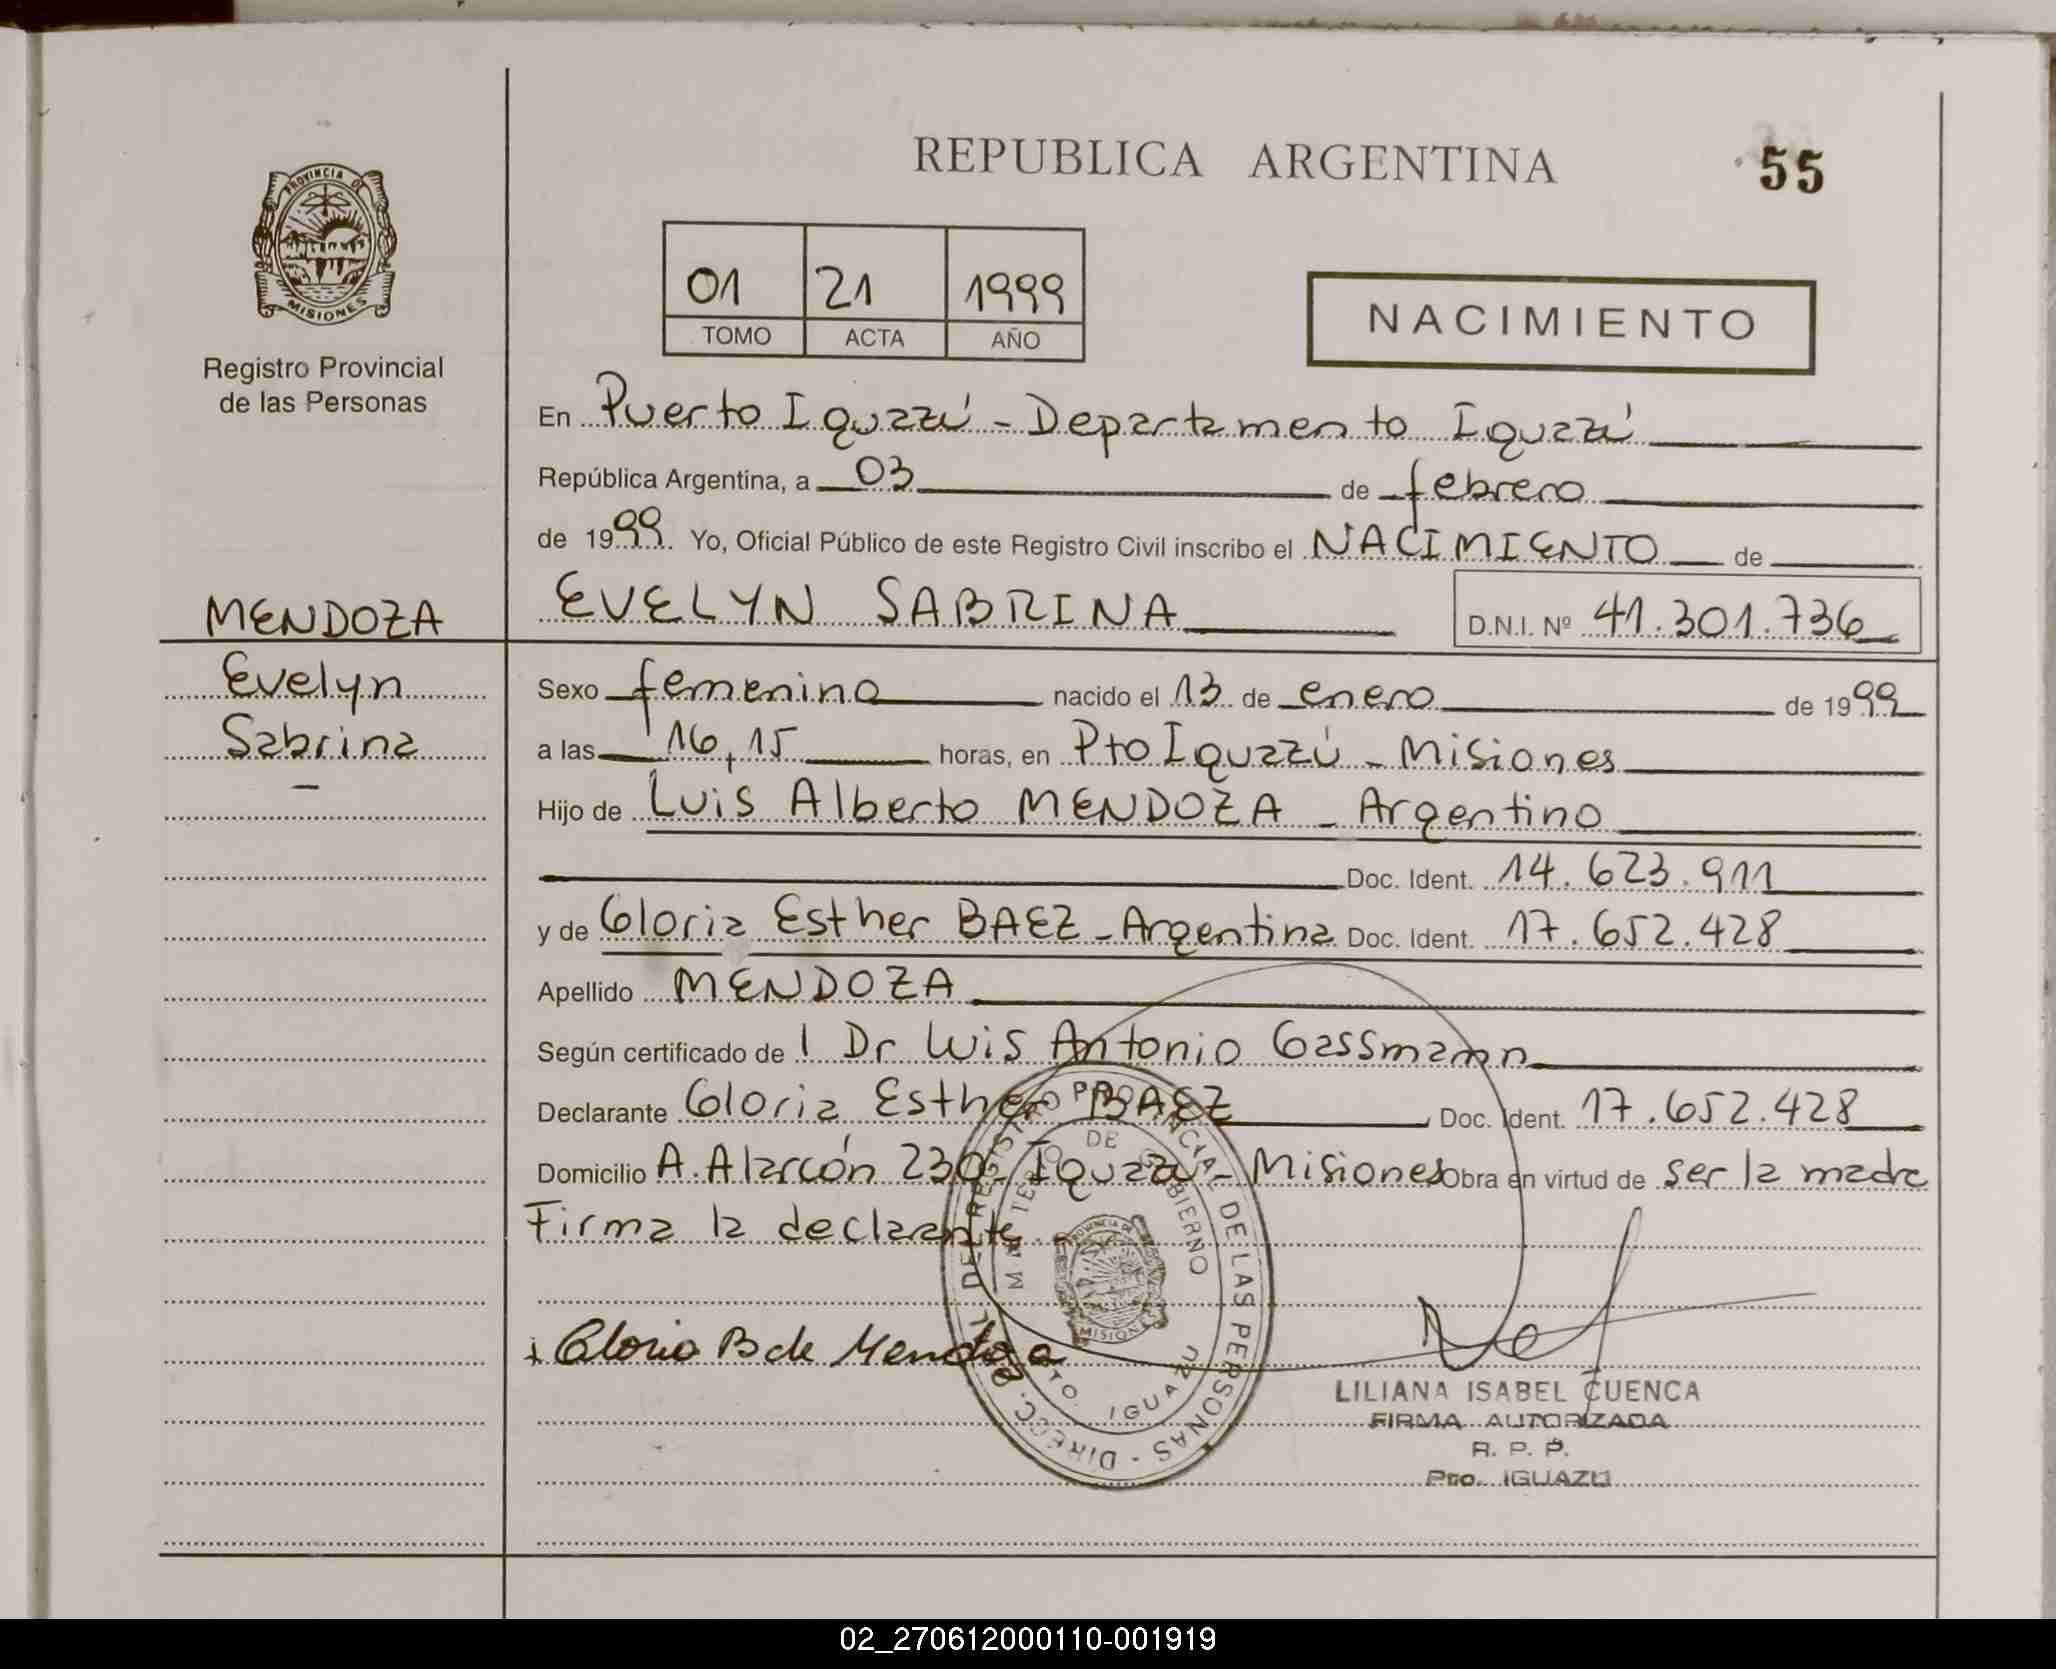 REPUBLICA ARGENTINA
55
PROVINCIA DE
MISIONES
Registro Provincial
de las Personas
01 21 1999
TOMO ACTA AÑO
NACIMIENTO
En Puerto Iguazú - Departamento Iguazú
República Argentina, a 03 de febrero
de 1999. Yo, Oficial Público de este Registro Civil inscribo el NACIMIENTO de
MENDOZA
EVELYN SABRINA D.N.I. Nº 41.301.736
Evelyn
Sabrina
Sexo femenino nacido el 13 de enero de 1999
a las 16,15 horas, en Pto Iguazú - Misiones
Hijo de Luis Alberto MENDOZA - Argentino
Doc. Ident. 14.623.911
y de Gloria Esther BAEZ - Argentina Doc. Ident. 17.652.428
Apellido MENDOZA
Según certificado de l Dr Luis Antonio Gassmann
Declarante Gloria Esther BAEZ Doc. Ident. 17.652.428
Domicilio A. Alarcón 230 - Iguazú - Misiones Obra en virtud de ser la madre
Firma la declarante -
Gloria B de Mendoza
DIRECC. GRAL. DEL REGISTRO PROVINCIAL DE LAS PERSONAS
MINISTERIO DE GOBIERNO
PROVINCIA DE
MISIONES
PTO. IGUAZU
LILIANA ISABEL CUENCA
FIRMA AUTORIZADA
R. P. P.
Pto. IGUAZU
02_270612000110-001919